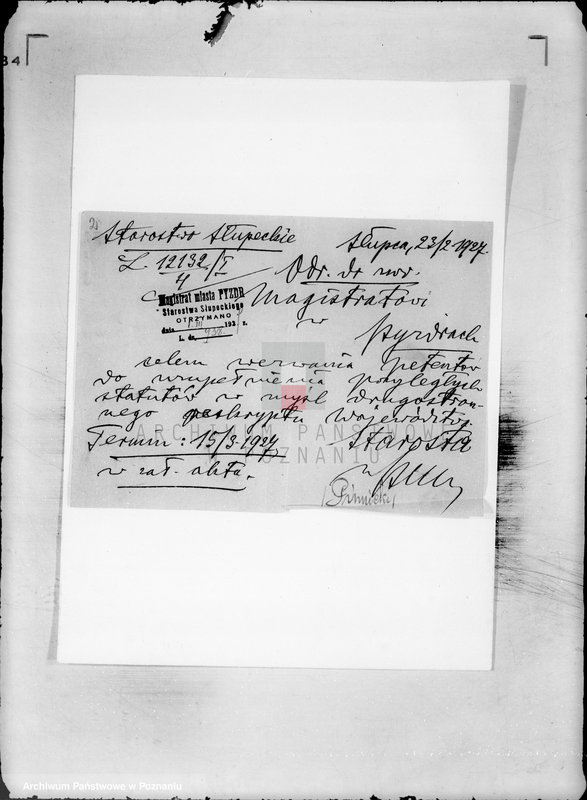 34
25
Starostwo Słupeckie
Słupca, 23/2 1927.
L. 12132/I
4
Odr. do
Magistrat miasta PYZDR
Starostwa Słupeckiego
OTRZYMANO
dnia 1. III 1927 r.
L. dz. 938
Magistratowi
w
Pyzdrach
celem wezwania petentów
do uzupełnienia przyległych
statutów w myśl drugostron-
nego reskryptu Województwa.
Termin: 15/3 1927
Starosta
w zał. akta.
ARCHIWUM PAŃSTWOWE
W POZNANIU
Archiwum Państwowe w Poznaniu